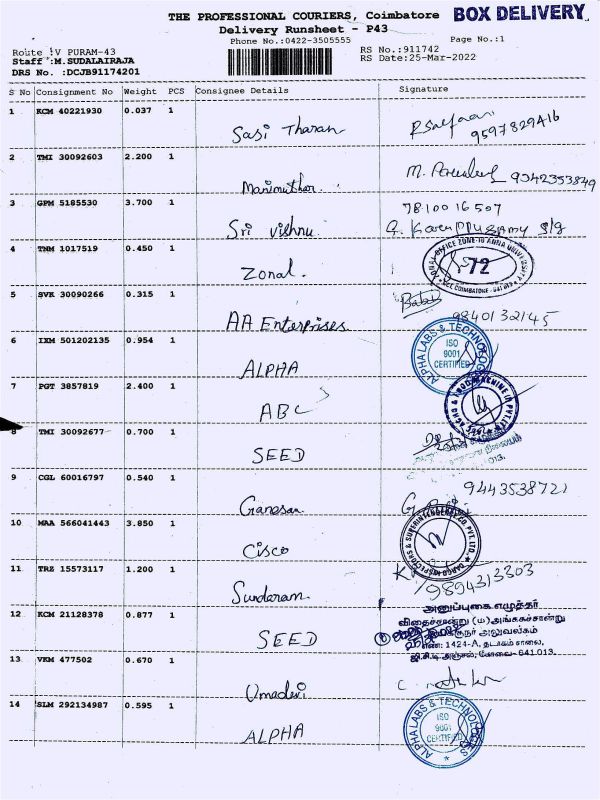 THE PROFESSIONAL COURIERS, Coimbatore BOX DELIVERY
Delivery Runsheet - P43
Phone No.:0422-3505555 Page No.:1
Route :V PURAM-43 RS No.:911742
Staff :M.SUDALAIRAJA RS Date:25-Mar-2022
DRS No. :DCJB91174201
S No Consignment No Weight PCS Consignee Details Signature
1 KCM 40221930 0.037 1
Sasi Tharan 9597829416
2 TMI 30092603 2.200 1
Manimuthu 9342353849
3 GPM 5185530 3.700 1 7810016507
Sri Vishnu
4 TNM 1017519 0.450 1
Zonal. 72
5 SVK 30090266 0.315 1 Babu
AA Enterprises 9840132145
6 IXM 501202135 0.954 1 ALPHA LABS & TECHNOLOGIES ISO 9001 CERTIFIED
ALPHA
7 PGT 3857819 2.400 1
ABC
8 TMI 30092677 0.700 1
SEED
9 CGL 60016797 0.540 1 9443538721
Ganesan
10 MAA 566041443 3.850 1
CISCO
11 TRZ 15573117 1.200 1
Sundaram 9894313303
12 KCM 21128378 0.877 1 அனுப்புகை எழுத்தர்
விதைச்சான்று (ம) அங்ககச்சான்று
SEED அலுவலகம்
எண்: 1424-A, தடாகம் சாலை,
ஜி.சி.டி அஞ்சல், கோவை-641 013.
13 VKM 477502 0.670 1
Umadevi
14 SLM 292134987 0.595 1 ALPHA LABS & TECHNOLOGIES ISO 9001 CERTIFIED
ALPHA